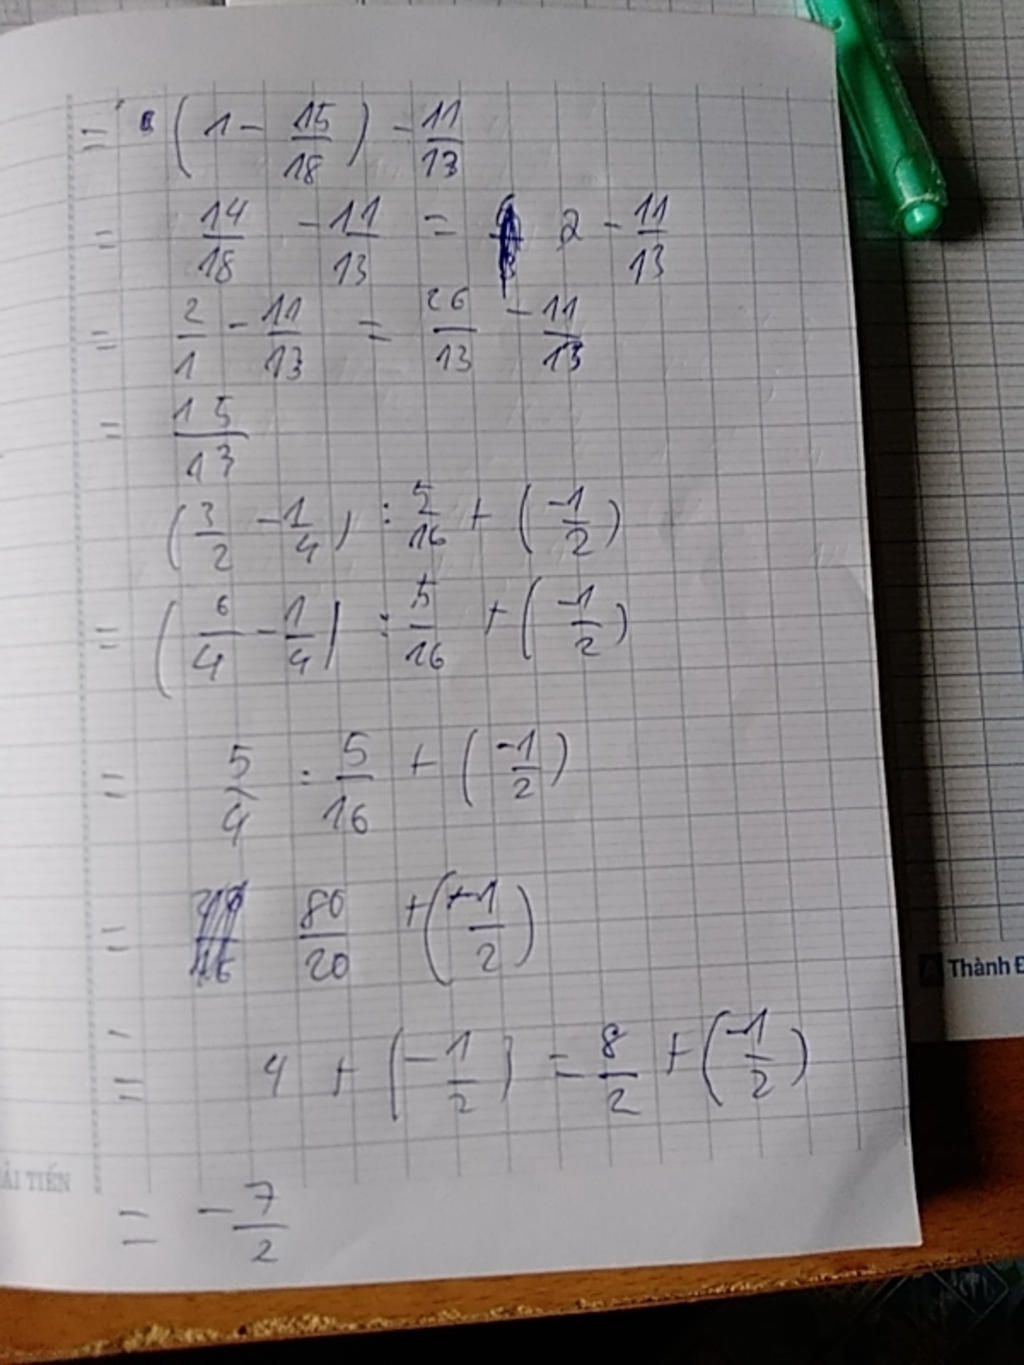 = (1 - 15/18) - 11/13
= 14/18 - 11/13 = 2 - 11/13
= 2/1 - 11/13 = 26/13 - 11/13
= 15/13
(3/2 - 1/4) : 5/16 + (-1/2)
= (6/4 - 1/4) : 5/16 + (-1/2)
= 5/4 : 5/16 + (-1/2)
= 80/20 + (-1/2)
= 4 + (-1/2) = 8/2 + (-1/2)
= -7/2
ẢI TIẾN
Thành Đ